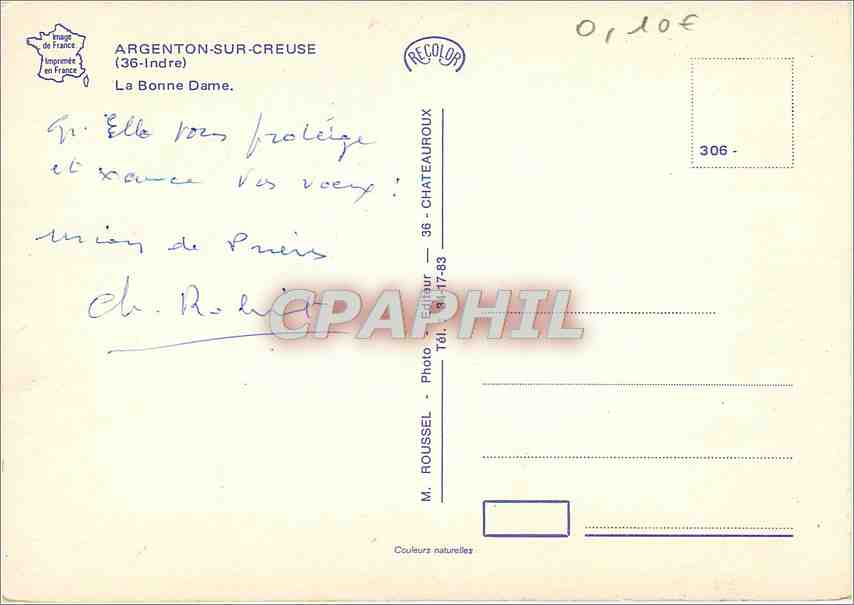 Image
de France
Imprimée
en France
ARGENTON-SUR-CREUSE
(36-Indre)
La Bonne Dame.
RECOLOR
0,10€
306-
Qu'Elle vous protège
et exauce vos voeux !
union de Prières
Ch.
CPAPHIL
M. ROUSSEL - Photo - Editeur — 36 - CHATEAUROUX
Tél. 34-17-83
Couleurs naturelles